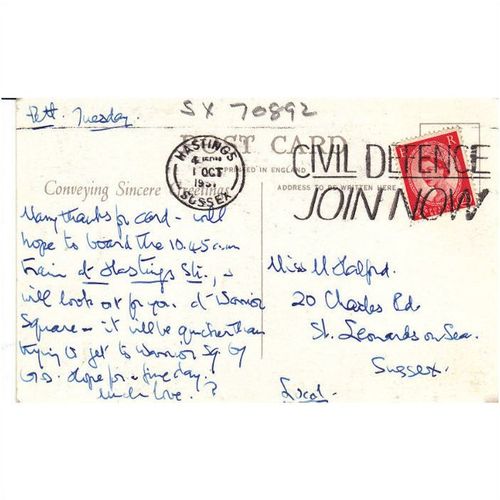 Pett. Tuesday.
SX 70892
POST CARD
HASTINGS
1 OCT
195
SUSSEX
CIVIL DEFENCE
JOIN NOW
E R
PRINTED IN ENGLAND
Conveying Sincere Greetings
ADDRESS TO BE WRITTEN HERE
Many thanks for card - will
hope to board the 10.45 a.m
train at Hastings Stn.,
will look out for you at Warrior
Square - it will be quicker than
trying to get to Warrior Sq by
bus. Hope for a fine day.
much love.
Miss M Halford.
20 Charles Rd.
St. Leonards on Sea.
Sussex.
Local.